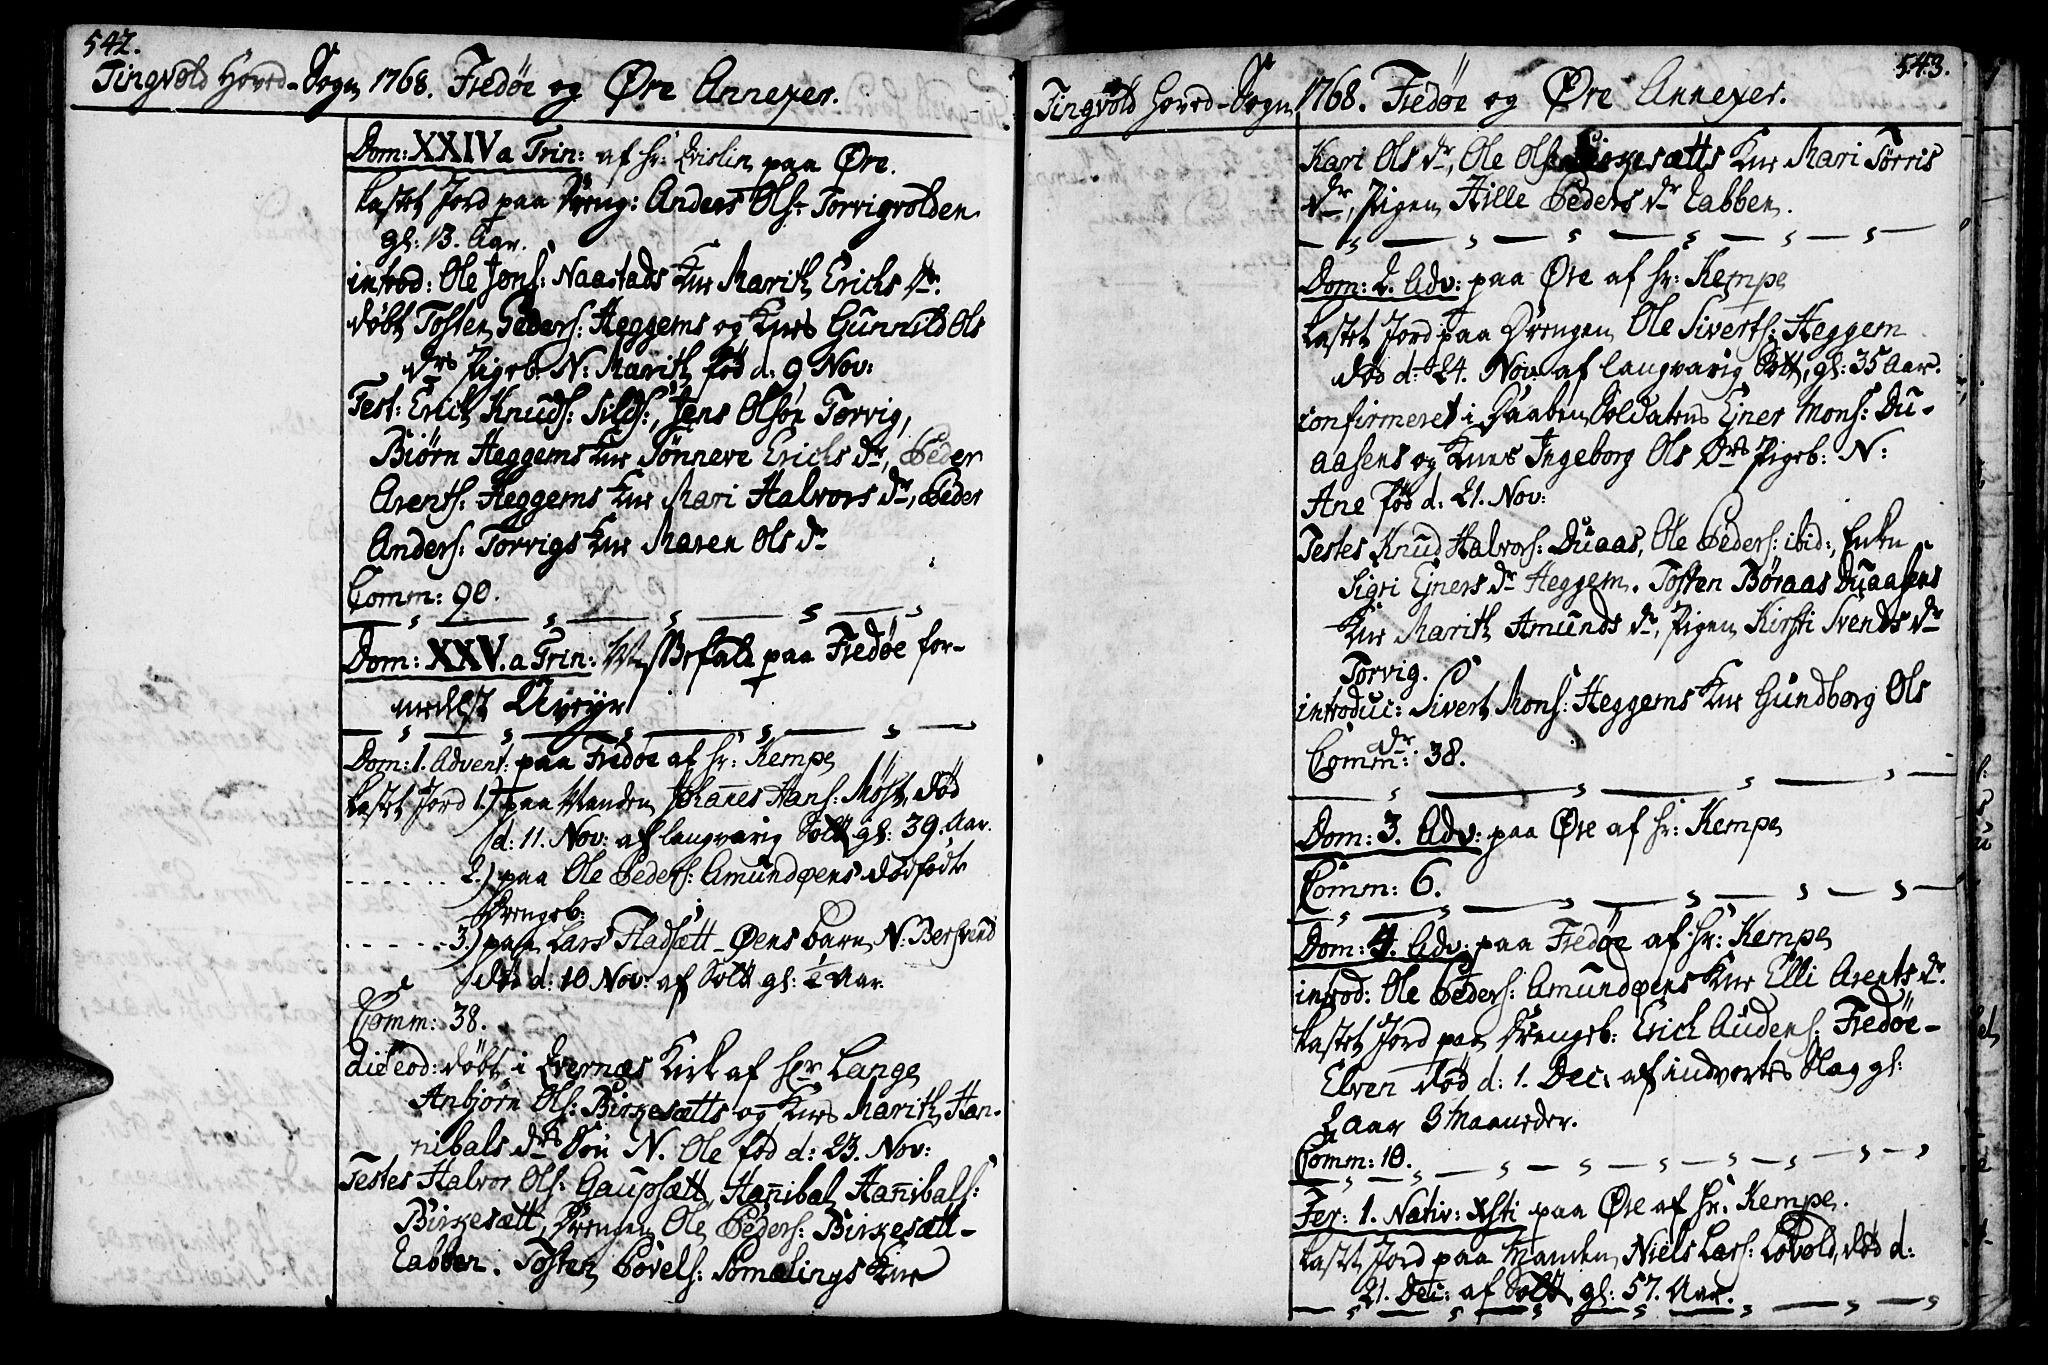 542.
Tingvold Hoved-Sogn 1768. Fredøe og Øre Annexer.
Dom: XXIV a Trin: af hr: Qvislin paa Øre.
kastet Jord paa Dreng: Anders Ols: Torvigvolden
gl: 13. Aar.
introd: Ole Jons: Naastads Kne Marith Erichs Dr.
døbt Tosten Peders: Heggems og Knes Gunnild Ols
Drs Pigeb. N: Marith fød d: 9 Nov:
Test: Erich Knuds: Silds:, Jens Olsøn Torvig,
Biørn Heggems Kne Sønneve Erichs Dr, Peder
Arents: Heggems Kne Mari Halvors Dr, Peder
Anders: Torvigs Kne Maren Ols Dr
Comm: 90.
Dom: XXV. a Trin: Messefald paa Fredøe for-
medelst Uveyr
Dom: 1. Advent: paa Fredøe af hr: Kempe
kastet Jord 1.) paa Manden Johañes Hans: Møst, død
d: 11. Nov: af langvarig Sott gl: 39. Aar.
2.) paa Ole Peders: Amundøens dødfødte
Drengeb:
3.) paa Lars Fladsætt-Øens barn N: Bersvend
død d: 10 Nov: af Sott gl: ½ Aar
Comm: 38.
die eod: døbt i Qvernæs Kirke af Hr Lange
Anbjørn Ols: Birkesætts og Knes Marith Han-
nibals Drs Søn N. Ole fød d: 23. Nov:
Testes Halvor Ols: Gaupsætt, Hañibal Hañibals:
Birkesætt, Drengen Ole Peders: Birkesætt-
Labben. Tosten Povels: Somelings Kne
543.
Tingvold Hoved-Sogn 1768. Fredøe og Øre Annexer.
Kari Ols Dr, Ole Ols: Birkesætts Kne Mari Tørris
Dr, Pigen Hille Peders Dr Labben.
Dom: 2. Adv: paa Øre af hr: Kempe
kastet Jord paa Drengen Ole Siverts: Heggem
død d: 24. Nov: af langvarig Sott, gl: 35 Aar.
confirmeret i Daaben Soldaten Ejner Mons: Du-
aasens og Knes Ingeborg Ols Drs Pigeb: N:
Ane fød d: 21. Nov:
Testes Knud Halvors: Duaas, Ole Peders: ibid:, Enken
Sigri Ejners Dr Heggem. Tosten Børaas Duaasens
Kne Marith Amunds Dr, Pigen Kirsti Svends Dr
Torvig.
introduc: Sivert Mons: Heggems Kne Gundborg Ols
Dr.
Comm: 38.
Dom: 3. Adv: paa Øre af hr: Kempe
Comm: 6.
Dom: 4. Adv: paa Fredøe af hr: Kempe
introd: Ole Peders: Amundøens Kne Elli Arents Dr.
kastet Jord paa Drengeb: Erich Audens: Fredøe-
Elven død d: 1. Dec: af indvortes Slag gl:
2 aar 3 Maaneder.
Comm: 10.
Fer: 1. Nativ: Xsti paa Øre af hr: Kempe.
kastet Jord paa Manden Niels Lars: Løvold, død d:
21. Dec: af Sott gl: 57. Aar.